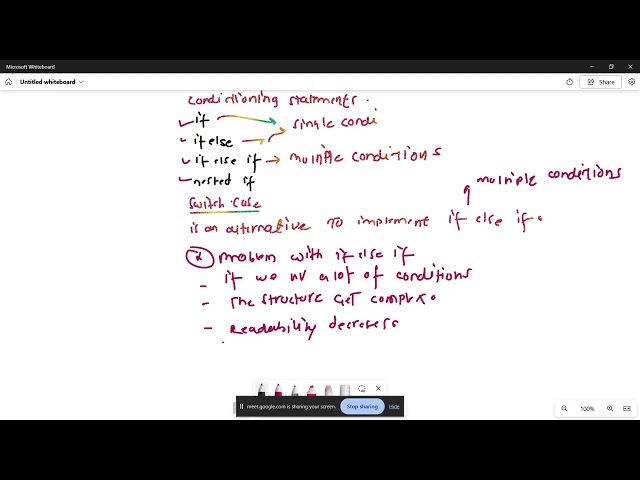 Microsoft Whiteboard
Untitled whiteboard
Share
conditioning statements.
if
single condi
if else
if else if → multiple conditions
nested if
multiple conditions
switch case
is an alternative to implement if else if.
problem with if else if
- if we hv a lot of conditions
- The structure get complex.
- Readability decreses
meet.google.com is sharing your screen.
Stop sharing
Hide
100%